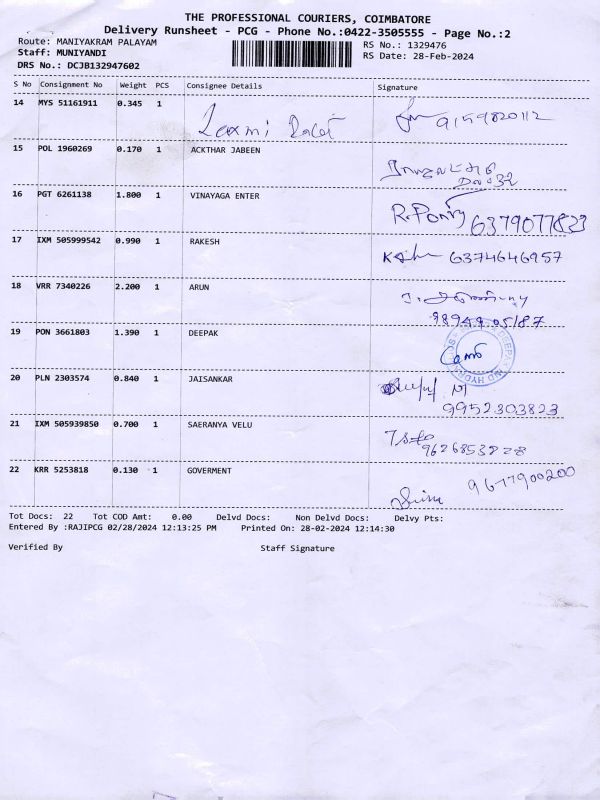 THE PROFESSIONAL COURIERS, COIMBATORE
Delivery Runsheet - PCG - Phone No.:0422-3505555 - Page No.:2
Route: MANIYAKRAM PALAYAM
RS No.: 1329476
Staff: MUNIYANDI
RS Date: 28-Feb-2024
DRS No.: DCJB132947602
S No Consignment No Weight PCS Consignee Details Signature
14 MYS 51161911 0.345 1 Laxmi 9159820112
15 POL 1960269 0.170 1 ACKTHAR JABEEN
16 PGT 6261138 1.800 1 VINAYAGA ENTER 6379077823
17 IXM 505999542 0.990 1 RAKESH 6374646957
18 VRR 7340226 2.200 1 ARUN
19 PON 3661803 1.390 1 DEEPAK
20 PLN 2303574 0.840 1 JAISANKAR
9952303823
21 IXM 505939850 0.700 1 SAERANYA VELU
22 KRR 5253818 0.130 1 GOVERMENT
Tot Docs: 22 Tot COD Amt: 0.00 Delvd Docs: Non Delvd Docs: Delvy Pts:
Entered By :RAJIPCG 02/28/2024 12:13:25 PM Printed On: 28-02-2024 12:14:30
Verified By Staff Signature